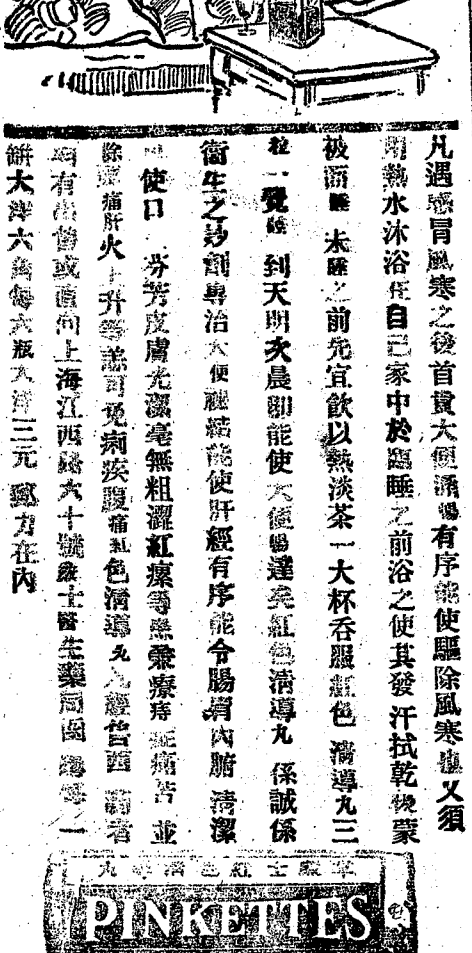 凡遇感冒風寒之後首貴大便通暢有序能使驅除風寒也又須
用熱水沐浴在自己家中於臨睡之前浴之使其發汗拭乾後蒙
被而睡未睡之前先宜飲以熱淡茶一大杯吞服紅色清導丸三
粒一覺睡到天明次晨即能使大便暢達矣紅色清導丸係誠係
衛生之妙劑專治大便秘結能使肝經有序能令腸胃內腑清潔
使口芬芳皮膚光潔毫無粗澀紅瘰等患兼療痔瘡痛苦並
除頭痛肝火上升等恙可免痢疾腹痛紅色清導丸凡經售西藥者
均有出售或直向上海江西路六十號韋廉士醫生藥局函購每一
瓶大洋六角每六瓶大洋三元郵力在內
丸導清色紅士廉韋
PINKETTES